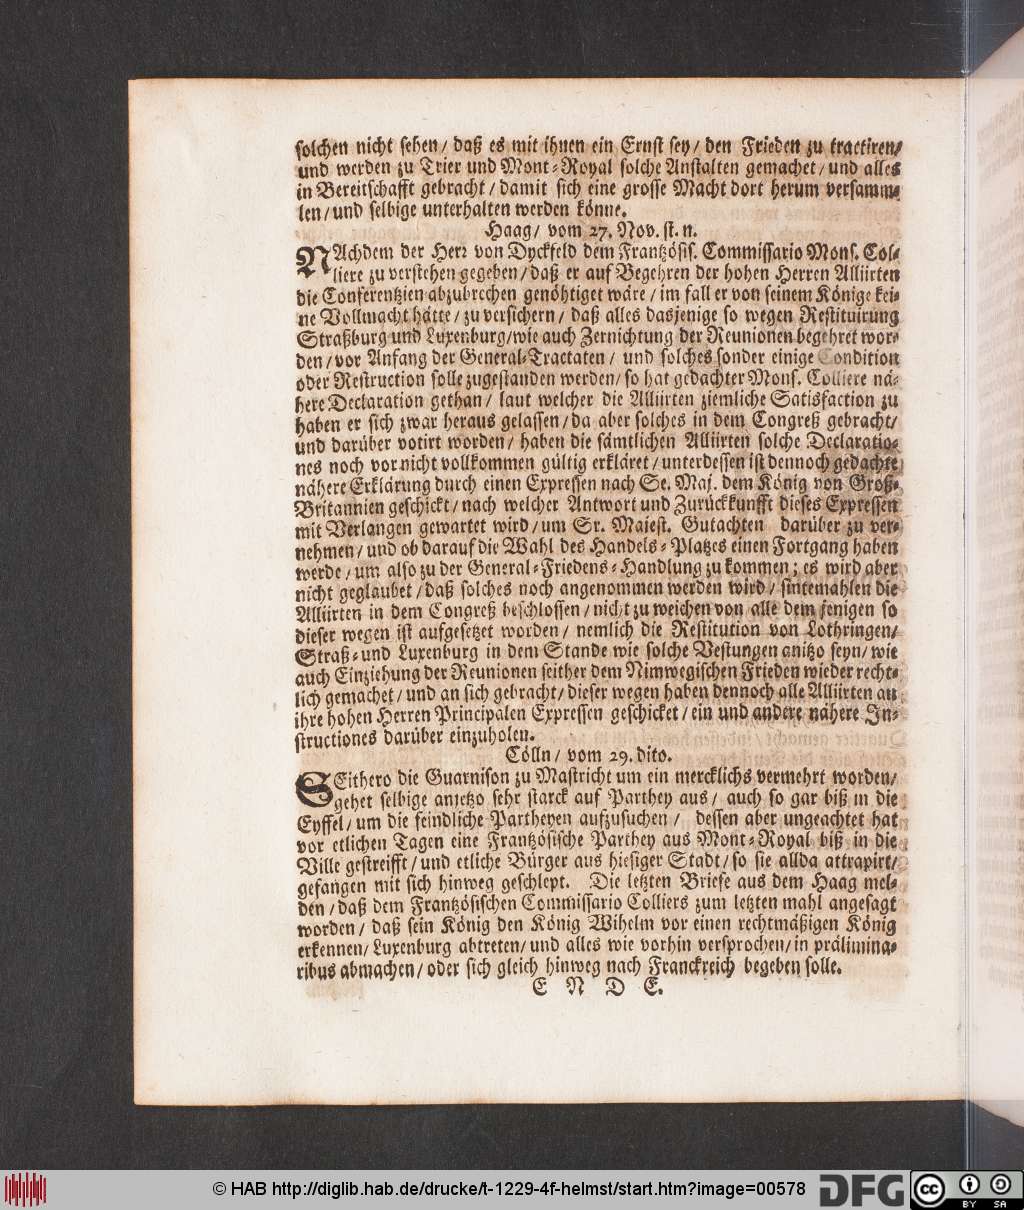 solchen nicht sehen/ daß es mit ihnen ein Ernst sey/ den Frieden zu tractiren/
und werden zu Trier und Mont-Royal solche Anstalten gemachet/ und alles
in Bereitschafft gebracht/ damit sich eine grosse Macht dort herum versamm-
len/ und selbige unterhalten werden könne.
Haag/ vom 27. Nov. st. n.
NAchdem der Herr von Dyckfeld dem Frantzösis. Commissario Mons. Col-
liere zu verstehen gegeben/ daß er auf Begehren der hohen Herren Alliirten
die Conferentzien abzubrechen genöhtiget wäre/ im fall er von seinem Könige kei-
ne Vollmacht hätte/ zu versichern/ daß alles dasjenige so wegen Restituirung
Straßburg und Luxenburg/ wie auch Zernichtung der Reunionen begehret wor-
den/ vor Anfang der General-Tractaten/ und solches sonder einige Condition
oder Restruction solle zugestanden werden/ so hat gedachter Mons. Colliere nä-
here Declaration gethan/ laut welcher die Alliirten ziemliche Satisfaction zu
haben er sich zwar heraus gelassen/ da aber solches in dem Congreß gebracht/
und darüber votirt worden/ haben die sämtlichen Alliirten solche Declaratio-
nes noch vor nicht vollkommen gültig erkläret/ unterdessen ist dennoch gedachte
nähere Erklärung durch einen Expressen nach Se. Maj. dem König von Groß-
Britannien geschickt/ nach welcher Antwort und Zurückkunfft dieses Expressen
mit Verlangen gewartet wird/ um Sr. Majest. Gutachten darüber zu ver-
nehmen/ und ob darauf die Wahl des Handels-Platzes einen Fortgang haben
werde/ um also zu der General-Friedens-Handlung zu kommen; es wird aber
nicht geglaubet/ daß solches noch angenommen werden wird/ sintemahlen die
Alliirten in dem Congreß beschlossen/ nicht zu weichen von alle dem jenigen so
dieser wegen ist aufgesetzet worden/ nemlich die Restitution von Lothringen/
Straß- und Luxenburg in dem Stande wie solche Vestungen anitzo seyn/ wie
auch Einziehung der Reunionen seither dem Nimwegischen Frieden wieder recht-
lich gemachet/ und an sich gebracht/ dieser wegen haben dennoch alle Alliirten an
ihre hohen Herren Principalen Expressen geschicket/ ein und andere nähere In-
structiones darüber einzuholen.
Cölln/ vom 29. dito.
SEithero die Guarnison zu Mastricht um ein mercklichs vermehrt worden/
gehet selbige anjetzo sehr starck auf Parthey aus/ auch so gar biß in die
Eyffel/ um die feindliche Partheyen aufzusuchen/ dessen aber ungeachtet hat
vor etlichen Tagen eine Frantzösische Parthey aus Mont-Royal biß in die
Ville gestreifft/ und etliche Bürger aus hiesiger Stadt/ so sie allda attrapirt/
gefangen mit sich hinweg geschlept. Die letzten Briefe aus dem Haag mel-
den/ daß dem Frantzösischen Commissario Colliers zum letzten mahl angesagt
worden/ daß sein König den König Wihelm vor einen rechtmäßigen König
erkennen/ Luxenburg abtreten/ und alles wie vorhin versprochen/ in prälimina-
ribus abmachen/ oder sich gleich hinweg nach Franckreich begeben solle.
E N D E.
© HAB http://diglib.hab.de/drucke/t-1229-4f-helmst/start.htm?image=00578
DFG
cc BY SA